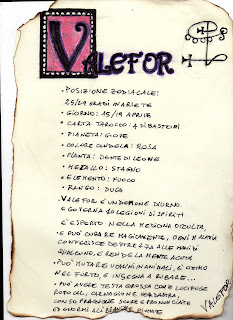 VALEFOR
• POSIZIONE ZODIACALE:
25/29 GRADI IN ARIETE
• GIORNO: 15/19 APRILE
• CARTA TAROCCO: 4 DI BASTONI
• PIANETA: GIOVE
• COLORE CANDELA: ROSA
• PIANTA: DENTE DI LEONE
• METALLO: STAGNO
• ELEMENTO: FUOCO
• RANGO: DUCA
VALEFOR È UN DEMONE DIURNO.
E GOVERNA 10 LEGIONI DI SPIRITI
• È ESPERTO NELLA MEDICINA OCCULTA,
E PUÒ CURARE MAGICAMENTE, OGNI MALATTIA
CONFERISCE DESTREZZA ALLE MANI DI
QUALCUNO, E RENDE LA MENTE ACUTA
• PUÒ MUTARE UOMINI IN ANIMALI, È OTTIMO
NEL FURTO, E INSEGNA A RUBARE...
• PUÒ AVERE TESTA GROSSA
OCCHI, CARNAGIONE
CON SOPRACCIGLIA SCURE
ED ENORMI ALI BIANCHE
VALEFOR